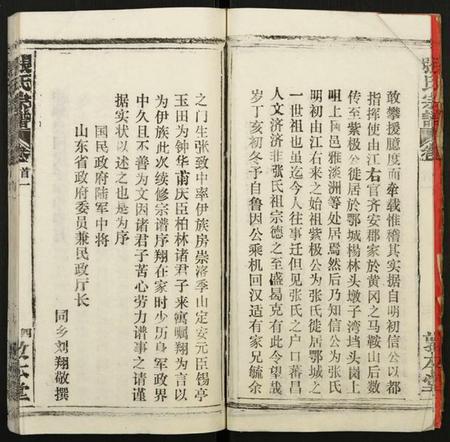 敢攀援臆度而牵载惟稽其实据自明初信公以都
指挥使由江右官齐安郡家於黄冈之马鞍山后数
传至紫极公徙居於鄂城杨林头墩子湾垱头岗上
咀上邑雅淡洲等处居焉然后乃知信公为张氏
明初由江右来之始祖紫极公为张氏徙居鄂城之
一世祖也虽迄今人往事迁但见张氏之户口蕃昌
人文济济非张氏祖宗德之至盛曷克有此今望哉
岁丁亥初冬予自鲁因公乘机回汉造有家兄毓余
之门生张致中率伊族房崇溶季山定安元臣锡亭
玉田为钟华甫厌臣柏林诸君子来寓嘱翔为言以
为伊族此次续修宗谱序翔在家时少历身军政界
中久且不善为文因诸君子苦心劳力谱事之请谨
据实状以述之也是为序
国民政府陆军中将
山东省政府委员兼民政厅长
同乡刘翔敬撰
張氏宗譜
卷首一
四
敦本堂